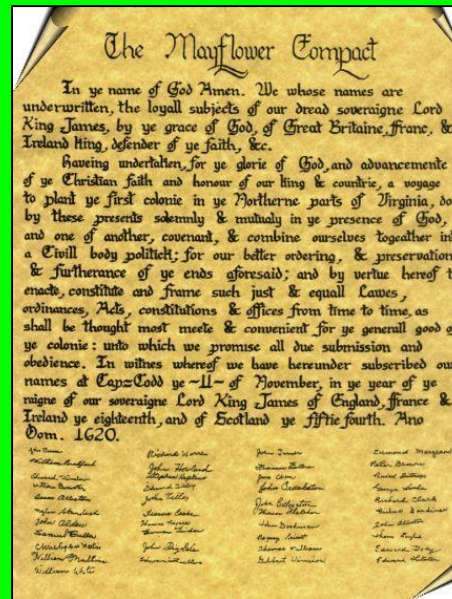 The Mayflower Compact
In ye name of God Amen. We whose names are
underwritten, the loyall subjects of our dread soveraigne Lord
King James, by ye grace of God, of Great Britaine, franc, &
Ireland King, defender of ye faith, &c.
Haveing undertaken, for ye glorie of God, and advancemente
of ye Christian faith and honour of our King & countrie, a voyage
to plant ye first colonie in ye Northerne parts of Virginia, do
by these presents solemnly & mutualy in ye presence of God,
and one of another, covenant, & combine ourselves togeather in
a Civill body politick; for our better ordering, & preservation
& furtherance of ye ends aforesaid; and by vertue hereof t
enacte, constitute and frame such just & equall Lawes,
ordinances, Acts, constitutions & offices from time to time, as
shall be thought most meete & convenient for ye generall good o
ye colonie: unto which we promise all due submission and
obedience. In witnes whereof we have hereunder subscribed ou
names at Cap=Codd ye ~11~ of November, in ye year of ye
raigne of our soveraigne Lord King James of England, ffrance &
Ireland ye eighteenth, and of Scotland ye fiftie fourth. Ano
Dom. 1620.
William Bradford
John Howland
Stephen Hopkins
Peter Brown
Edward Tilley
Isaac Allerton
John Tilley
Richard Clark
John Alden
John Allerton
Samuel Fuller
Thomas Tinker
John Rigdale
Thomas Williams
Edward Doty
William Mullins
Edward Leister
William White